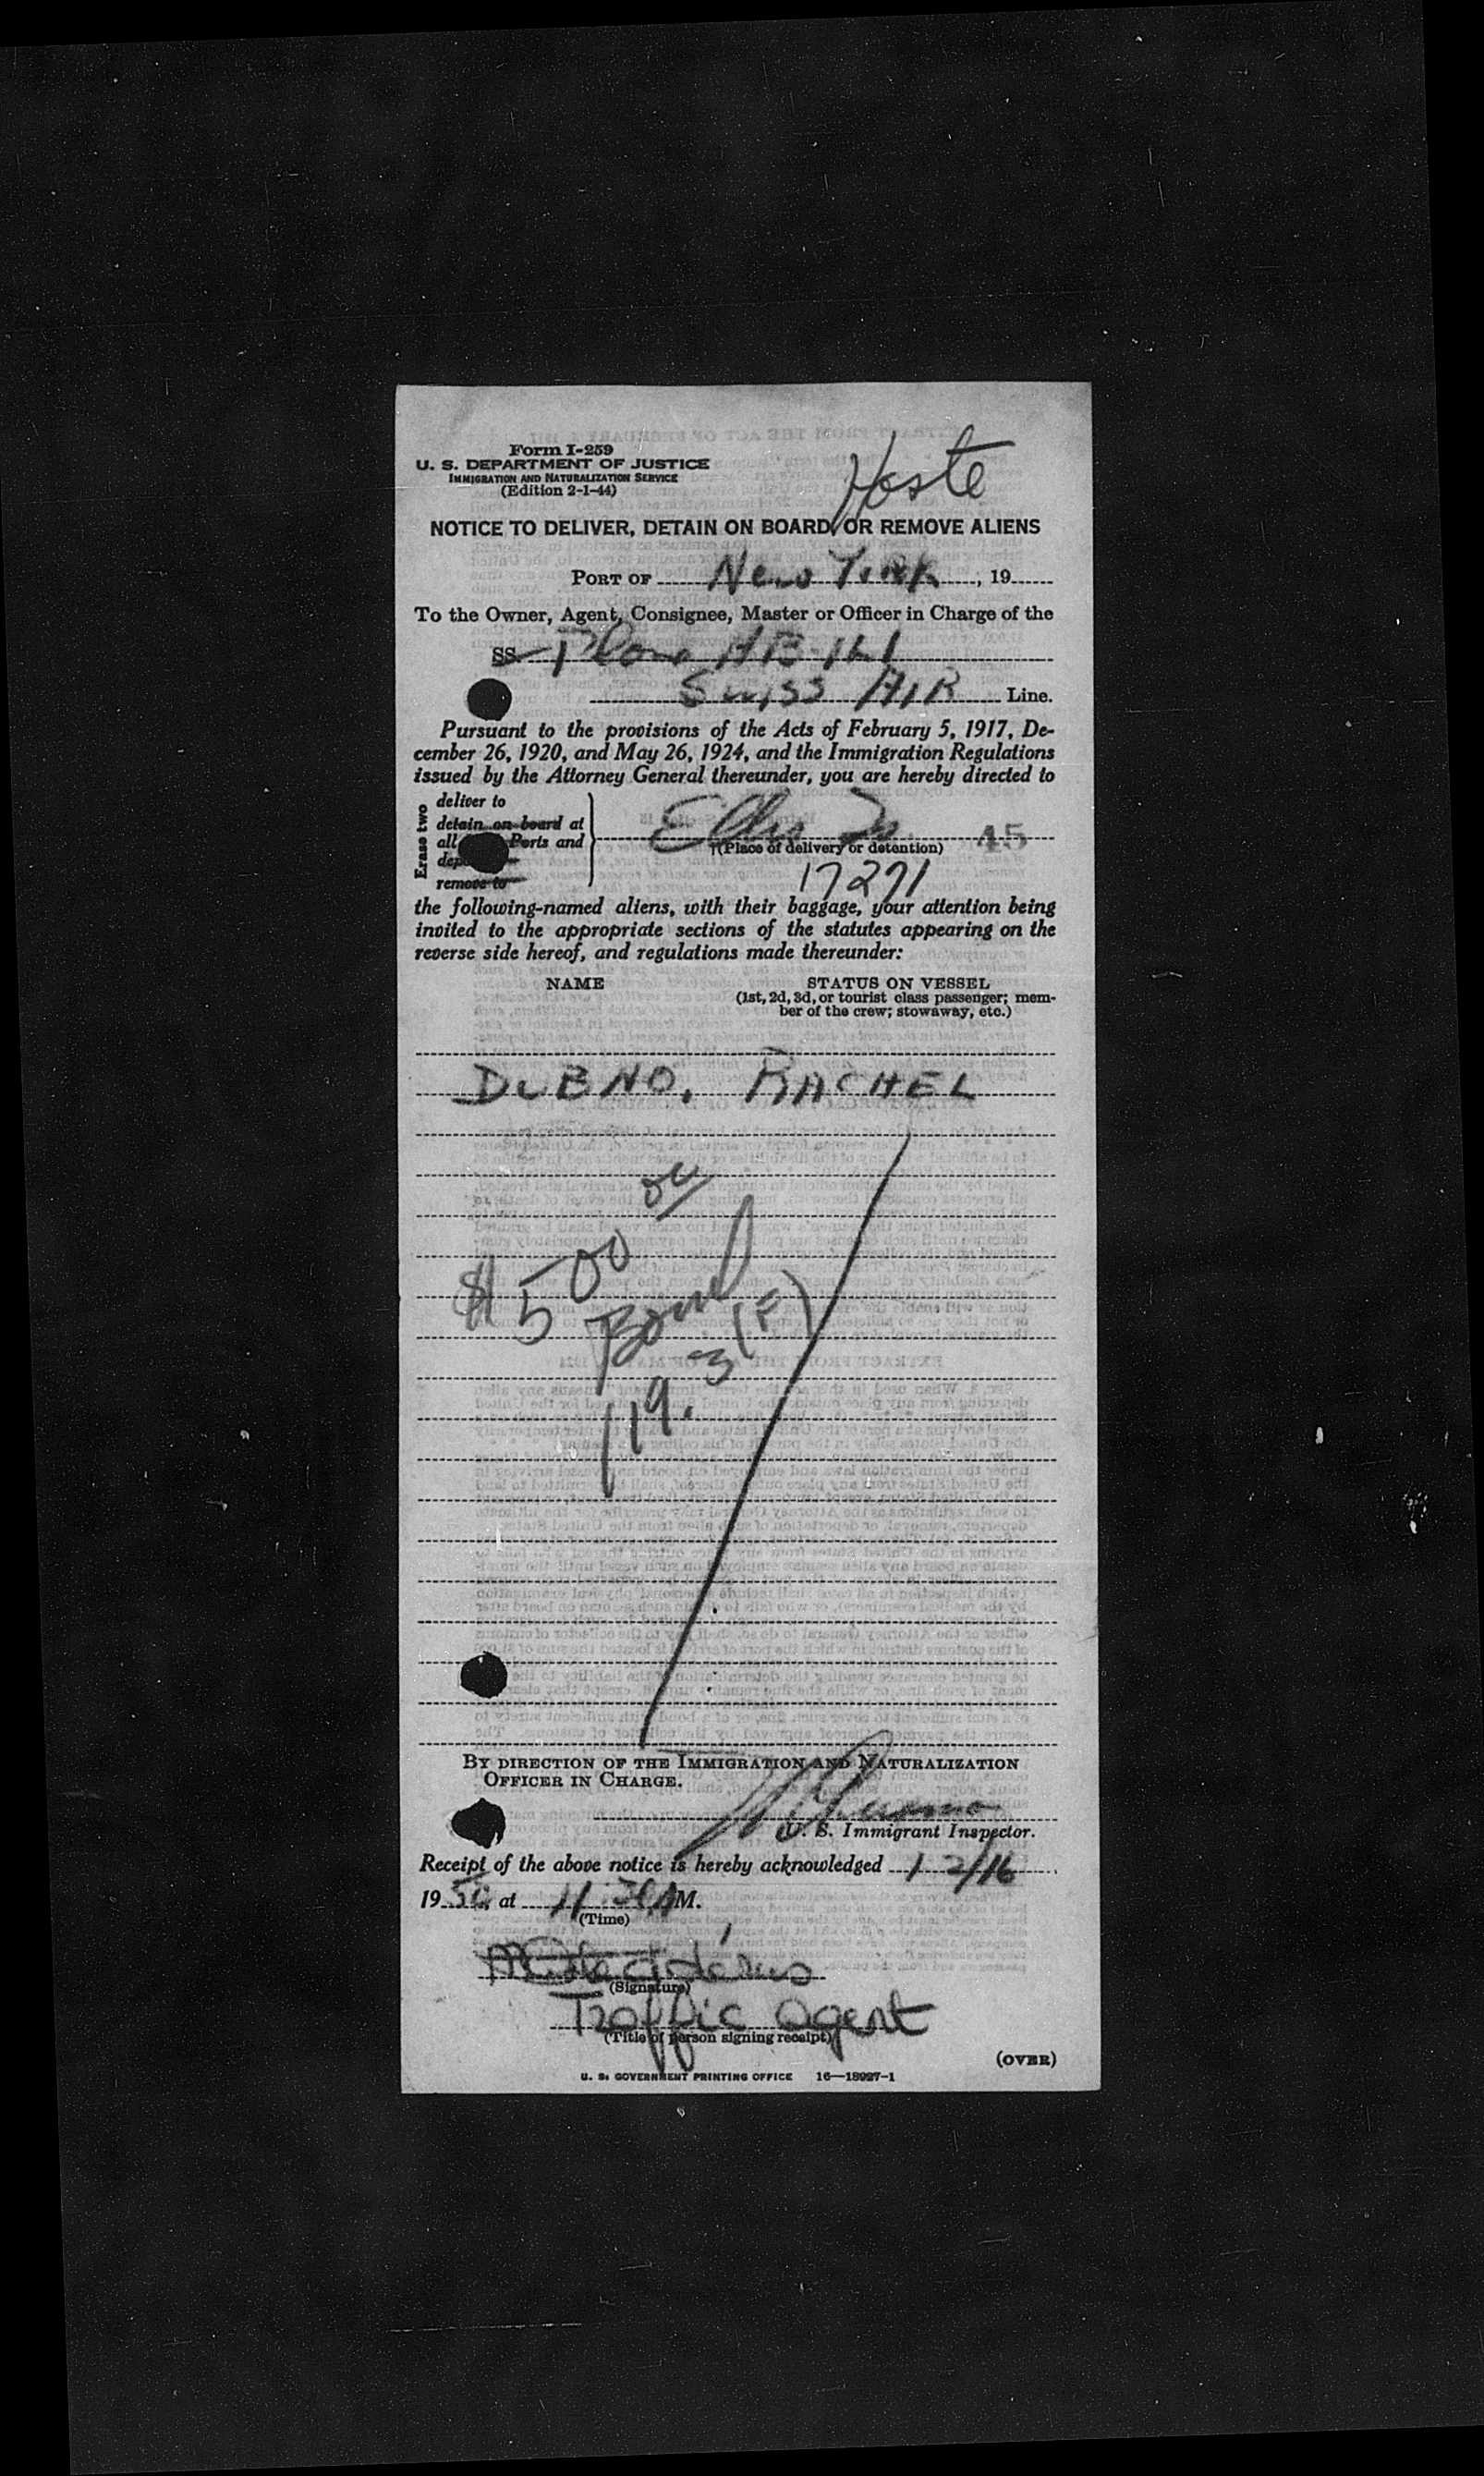 Form I-259
U. S. DEPARTMENT OF JUSTICE
IMMIGRATION AND NATURALIZATION SERVICE
(Edition 2-1-44)
NOTICE TO DELIVER, DETAIN ON BOARD, OR REMOVE ALIENS
PORT OF New York, 19
To the Owner, Agent, Consignee, Master or Officer in Charge of the
SS Plane HB-ILI
Swiss AIR Line.
Pursuant to the provisions of the Acts of February 5, 1917, De-
cember 26, 1920, and May 26, 1924, and the Immigration Regulations
issued by the Attorney General thereunder, you are hereby directed to
Erase two
deliver to
detain on board at
all Ports and
remove to
Ellis Is. 45
†(Place of delivery or detention)
17271
the following-named aliens, with their baggage, your attention being
invited to the appropriate sections of the statutes appearing on the
reverse side hereof, and regulations made thereunder:
NAME STATUS ON VESSEL
(1st, 2d, 3d, or tourist class passenger; mem-
ber of the crew; stowaway, etc.)
DUBNO, RACHEL
$500 00
Bond
3(F)
119.
BY DIRECTION OF THE IMMIGRATION AND NATURALIZATION
OFFICER IN CHARGE.
U. S. Immigrant Inspector.
Receipt of the above notice is hereby acknowledged 12/16
1950, at 11:30 AM.
(Time)
(Signature)
Traffic agent
(Title of person signing receipt)
(OVER)
U. S. GOVERNMENT PRINTING OFFICE 16—18927-1